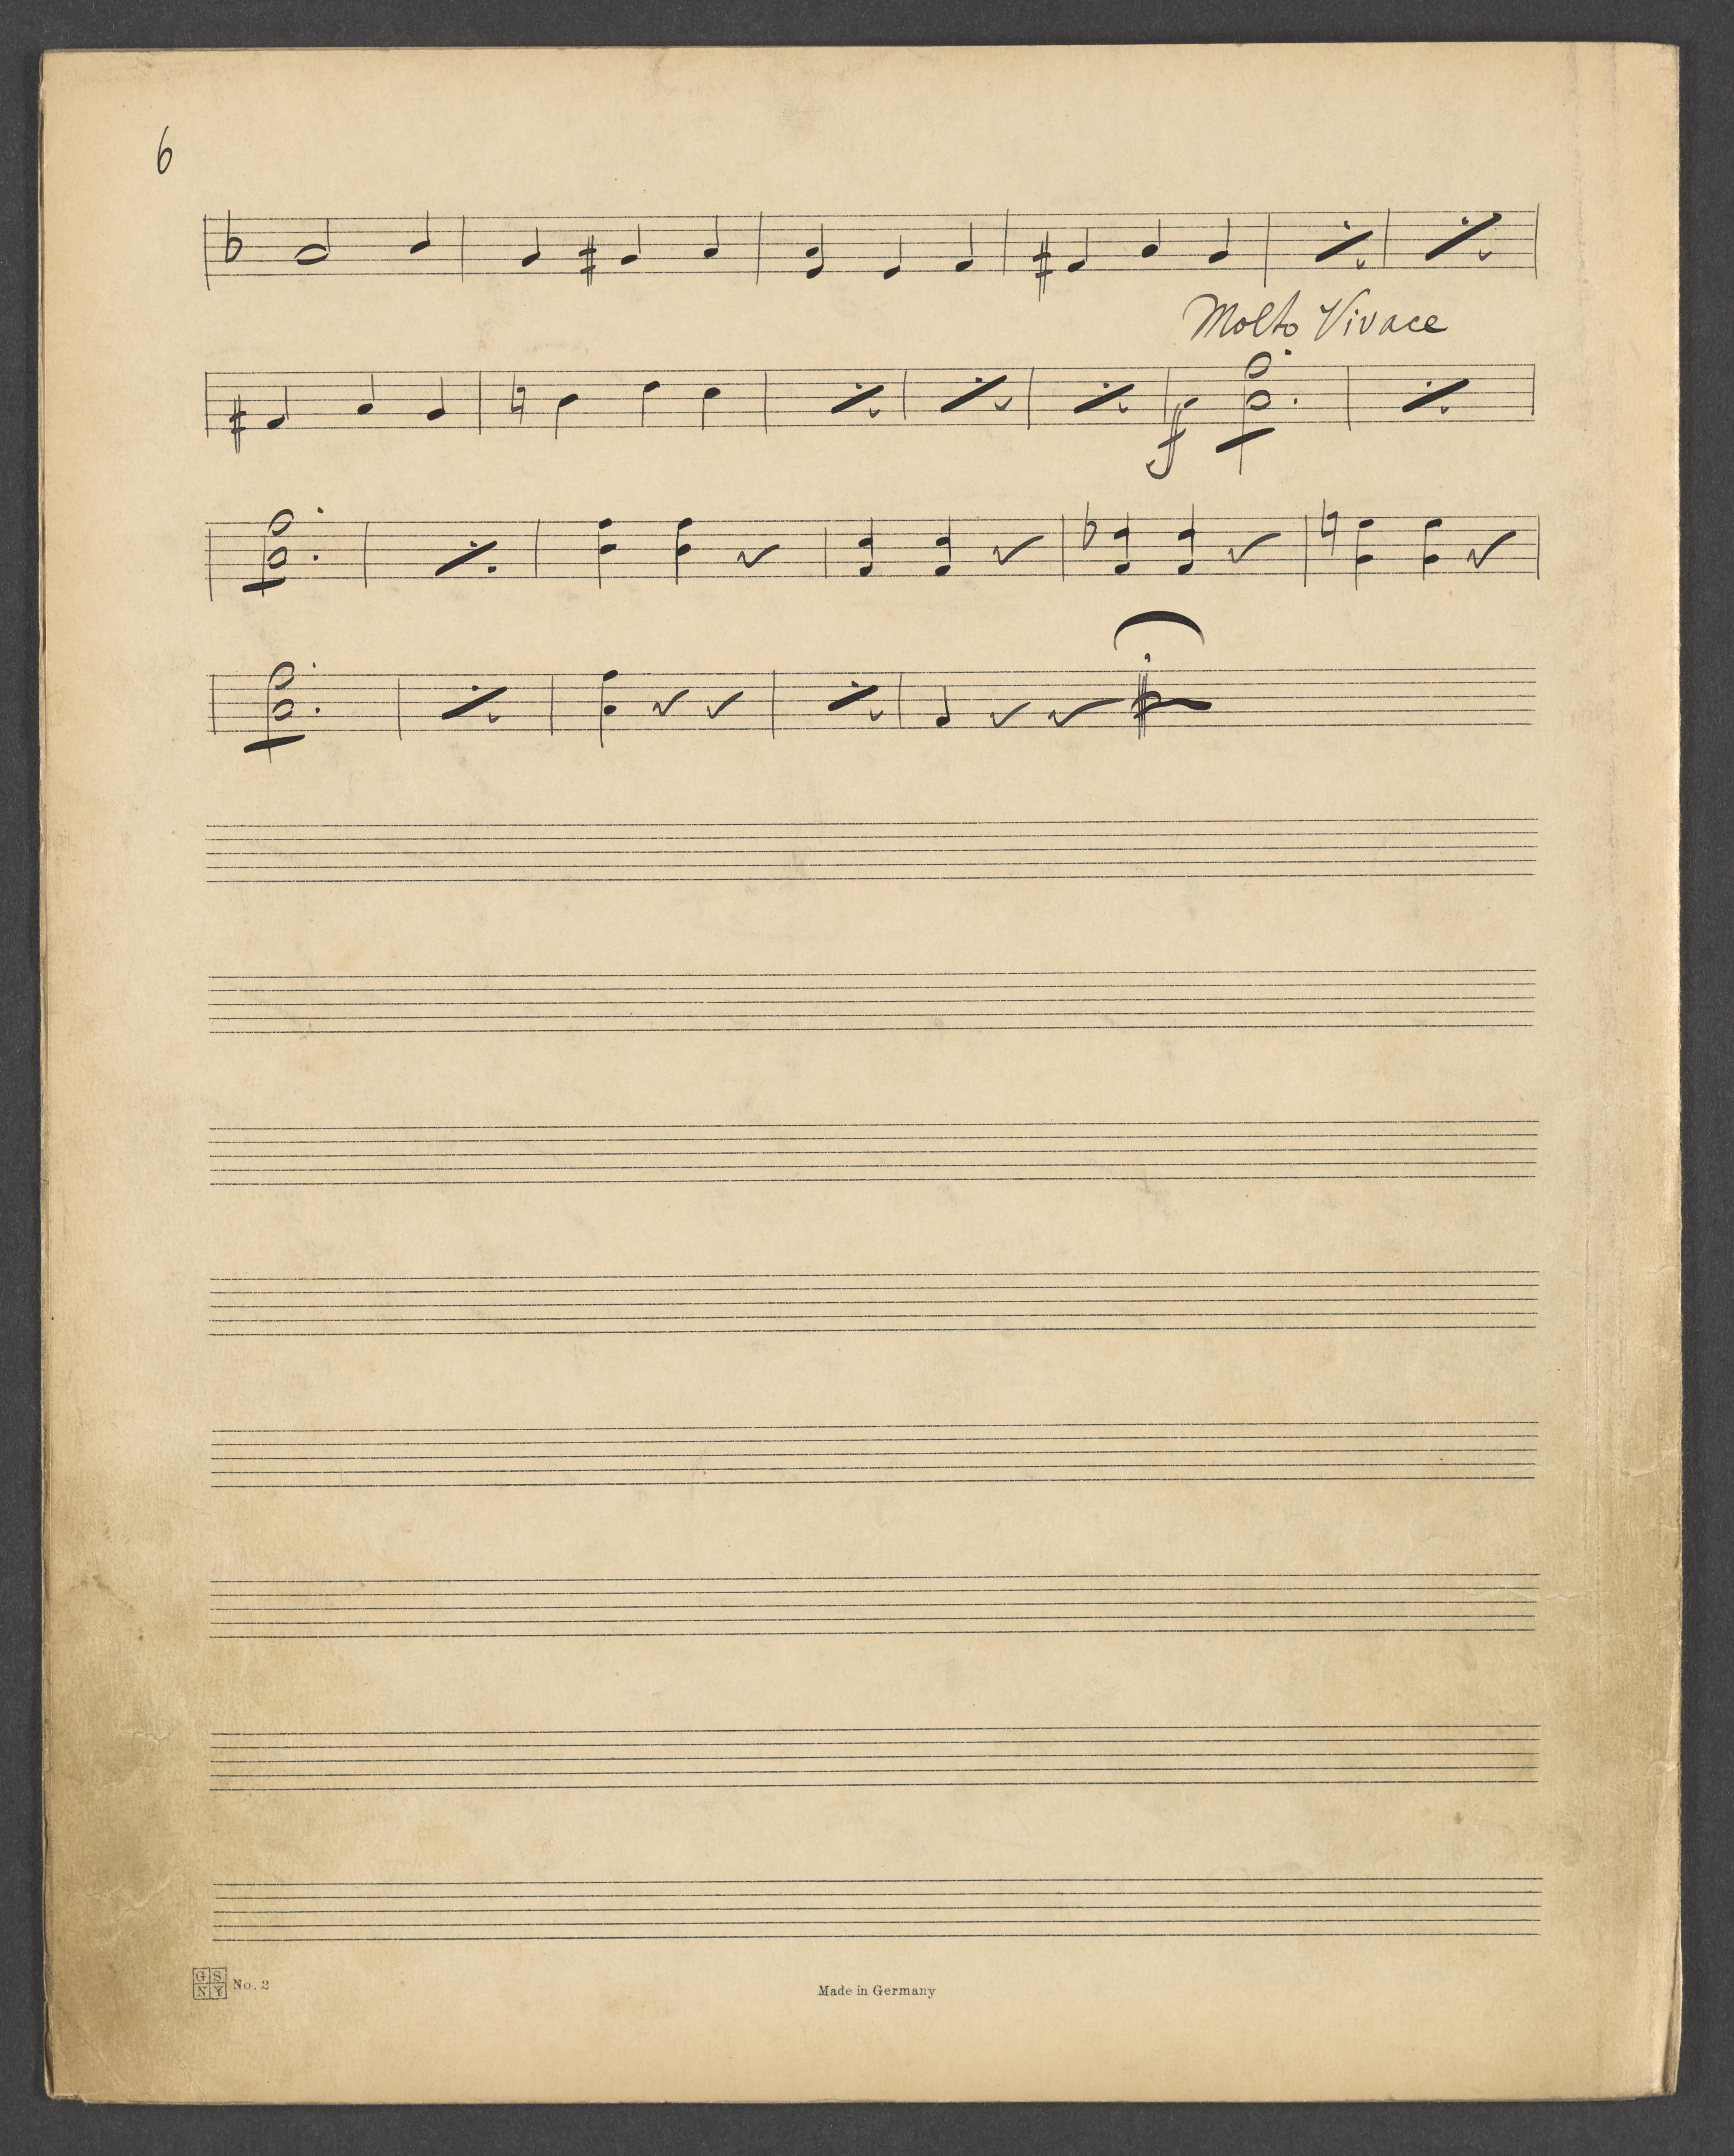 6
Molto Vivace
f
GS
NY No. 2
Made in Germany